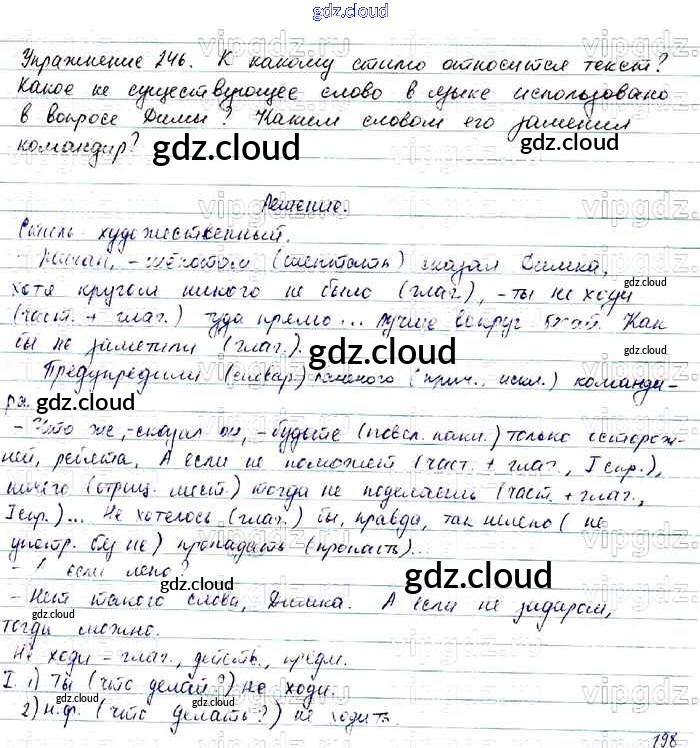 gdz.cloud
Упражнение 246. К какому стилю относится текст?
Какое не существующее слово в языке использовано
в вопросе Димы? Каким словом его заменил
командир?
gdz.cloud
Решение.
Стиль художественный.
- Жиган, - шёпотом (шептать) сказал Димка,
хотя кругом никого не было (глаг.), - ты не ходи
(част. + глаг.) туда прямо... лучше вокруг бегай. Как
бы не заметили (глаг.).
Предупредили (словар.) раненого (прич., искл.) команди-
ра.
- Что же, - сказал он, - будьте (повел. накл.) только осторож-
ней, ребята. А если не поможет (част. + глаг., I спр.),
ничего (отриц. мест.) тогда не поделаешь (част. + глаг.,
I спр.)... Не хотелось (глаг.) бы, правда, так нелепо (не
употр. без не) пропадать (пропасть)...
- А если лепо?
- Нет такого слова, Димка. А если не задаром,
тогда можно.
Не ходи - глаг., действ. предм.
I. 1) Ты (что делай?) не ходи.
2) н.ф. (что делать?) не ходить.
198